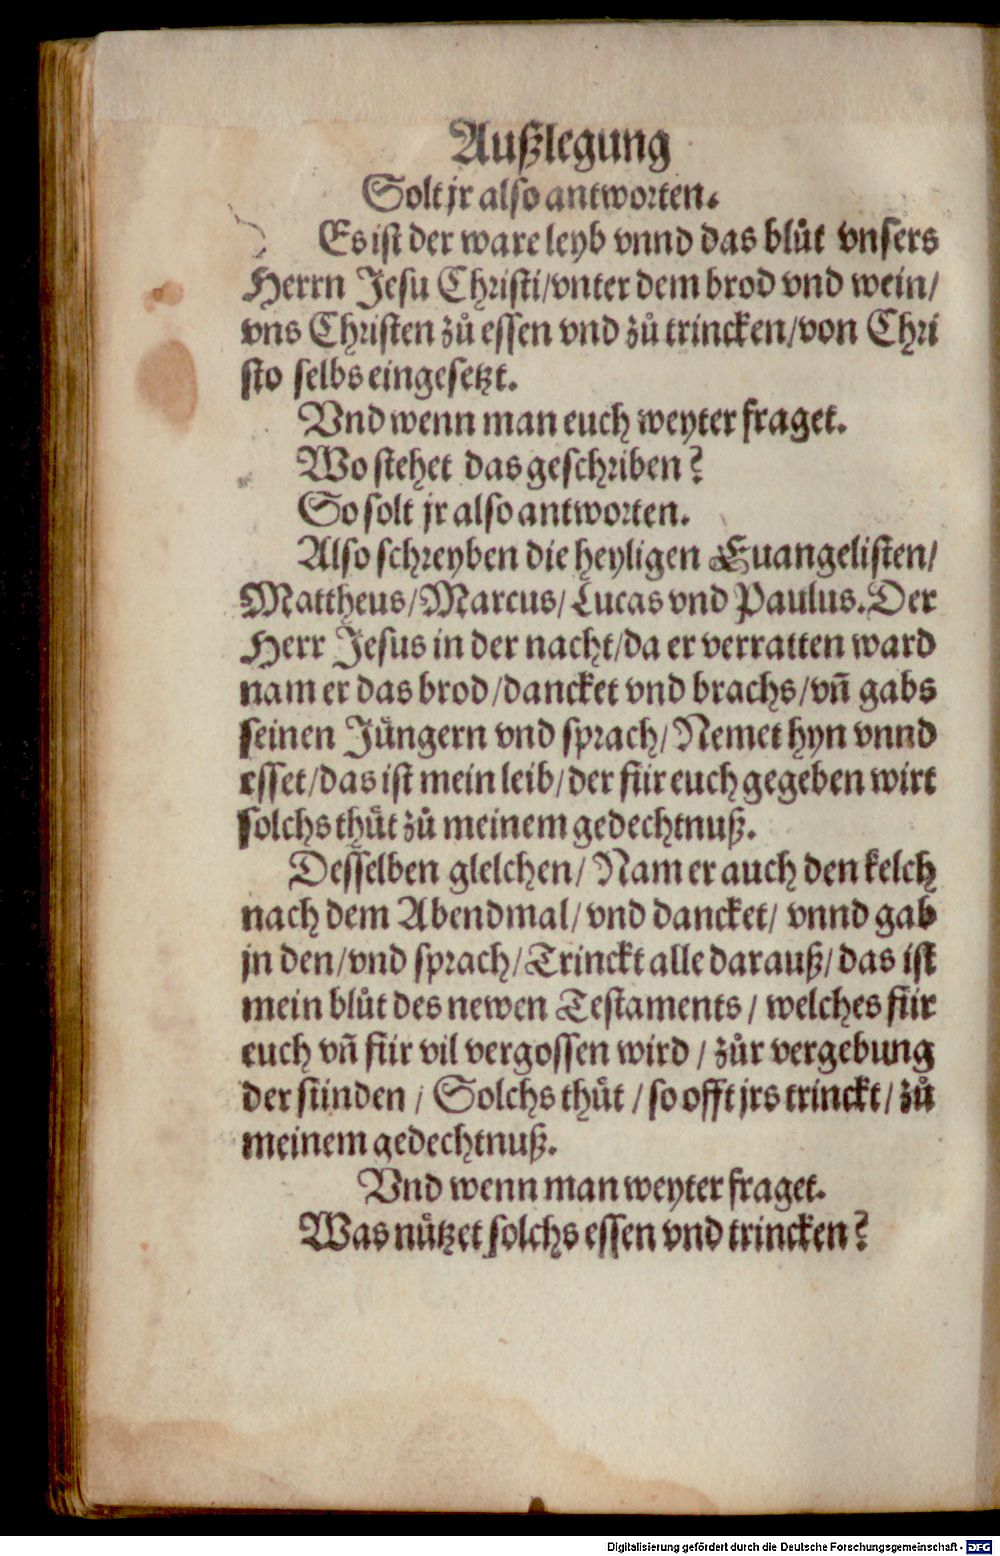 Außlegung
Solt jr also antworten.
Es ist der ware leyb vnnd das blůt vnsers
Herrn Jesu Christi/vnter dem brod vnd wein/
vns Christen zů essen vnd zů trincken/von Chri
sto selbs eingesetzt.
Vnd wenn man euch weyter fraget.
Wo stehet das geschriben?
So solt jr also antworten.
Also schreyben die heyligen Euangelisten/
Mattheus/Marcus/Lucas vnd Paulus. Der
Herr Jesus in der nacht/da er verratten ward
nam er das brod/dancket vnd brachs/vñ gabs
seinen Jüngern vnd sprach/Nemet hyn vnnd
esset/das ist mein leib/der für euch gegeben wirt
solchs thůt zů meinem gedechtnuß.
Desselben glelchen/Nam er auch den kelch
nach dem Abendmal/vnd dancket/vnnd gab
jn den/vnd sprach/Trinckt alle darauß/das ist
mein blůt des newen Testaments/welches für
euch vñ für vil vergossen wird/zůr vergebung
der sünden/Solchs thůt/so offt jrs trinckt/zů
meinem gedechtnuß.
Vnd wenn man weyter fraget.
Was nützet solchs essen vnd trincken?
Digitalisierung gefördert durch die Deutsche Forschungsgemeinschaft - DFG